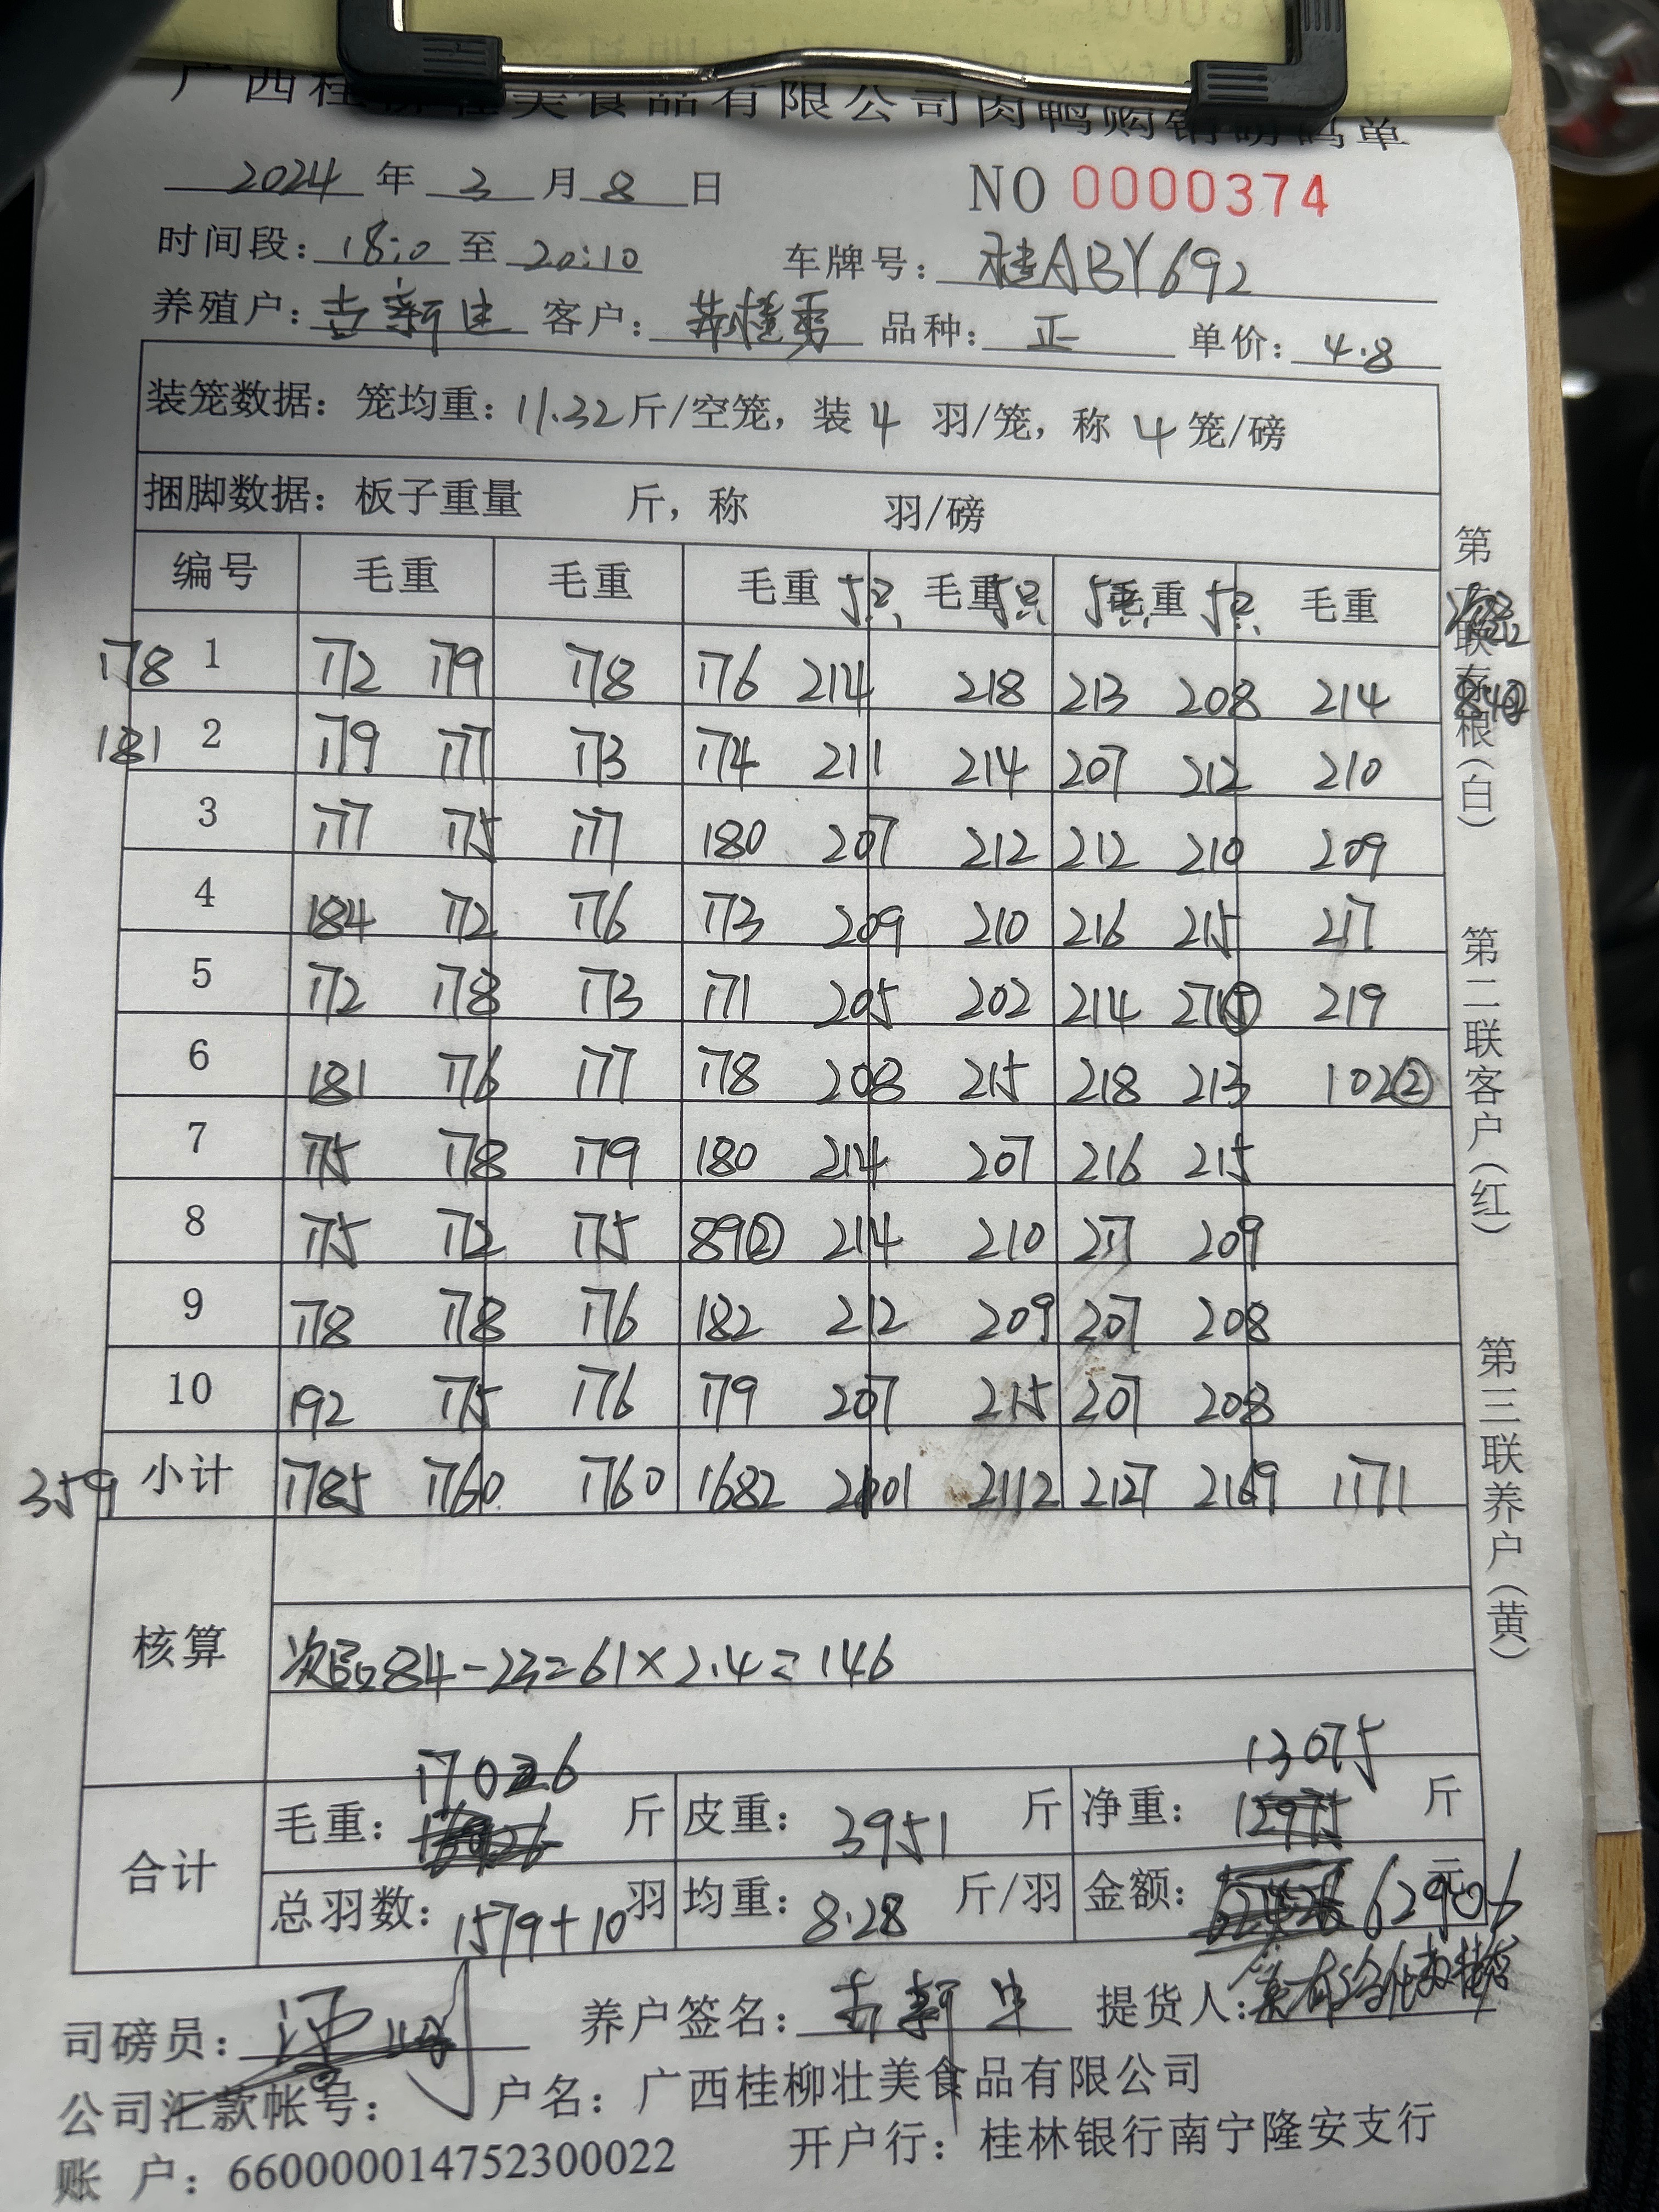 广西桂柳壮美食品有限公司肉鸭购销明码单
2024 年 3 月 8 日 NO 0000374
时间段: 18:0 至 20:10 车牌号: 桂ABY692
养殖户: 吉新生 客户: 品种: 正 单价: 4.8
装笼数据: 笼均重: 11.32 斤/空笼, 装 4 羽/笼, 称 4 笼/磅
捆脚数据: 板子重量 斤, 称 羽/磅
编号 毛重 毛重 毛重 5只 毛重 5只 5只 毛重 5只 毛重
178 1 172 179 178 176 214 218 213 208 214
181 2 179 177 173 174 211 214 207 212 210
3 177 175 177 180 207 212 212 210 209
4 184 172 176 173 209 210 216 215 217
5 172 178 173 171 205 202 214 271⑤ 219
6 181 176 177 178 208 215 218 213 102②
7 175 178 179 180 214 207 216 215
8 175 172 175 89② 214 210 217 209
9 178 178 176 182 212 209 207 208
10 192 175 176 179 207 215 207 208
359 小计 1785 1760 1760 1682 2101 2112 2127 2169 1171
核算
次品84-23=61×2.4=146
17026 13075
合计 毛重: 斤 皮重: 3951 斤 净重: 12975 斤
总羽数: 1579+10 羽 均重: 8.28 斤/羽 金额: 62906 元
司磅员: 养户签名: 吉新生 提货人:
公司汇款帐号: 户名: 广西桂柳壮美食品有限公司
账 户: 660000014752300022 开户行: 桂林银行南宁隆安支行
第一联存根(白)
第二联客户(红)
第三联养户(黄)